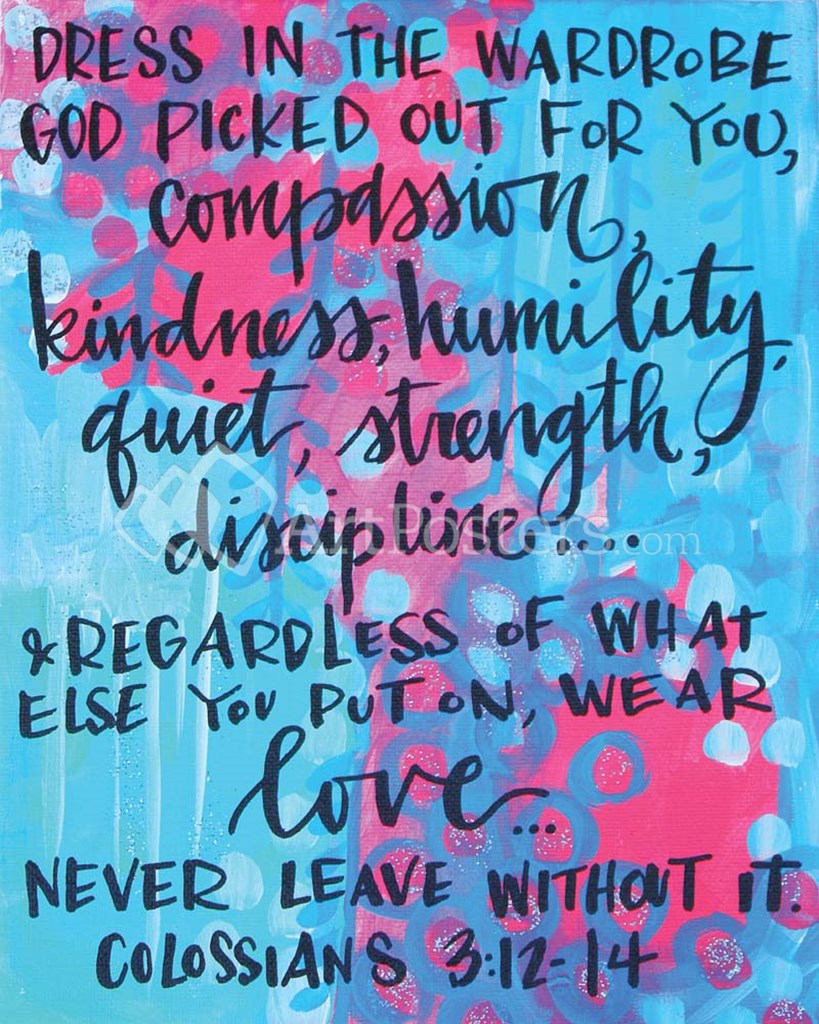 DRESS IN THE WARDROBE
GOD PICKED OUT FOR YOU,
compassion,
kindness, humility,
quiet, strength,
discipline....
ArtPosters.com
& REGARDLESS OF WHAT
ELSE YOU PUT ON, WEAR
love...
NEVER LEAVE WITHOUT IT.
COLOSSIANS 3:12-14